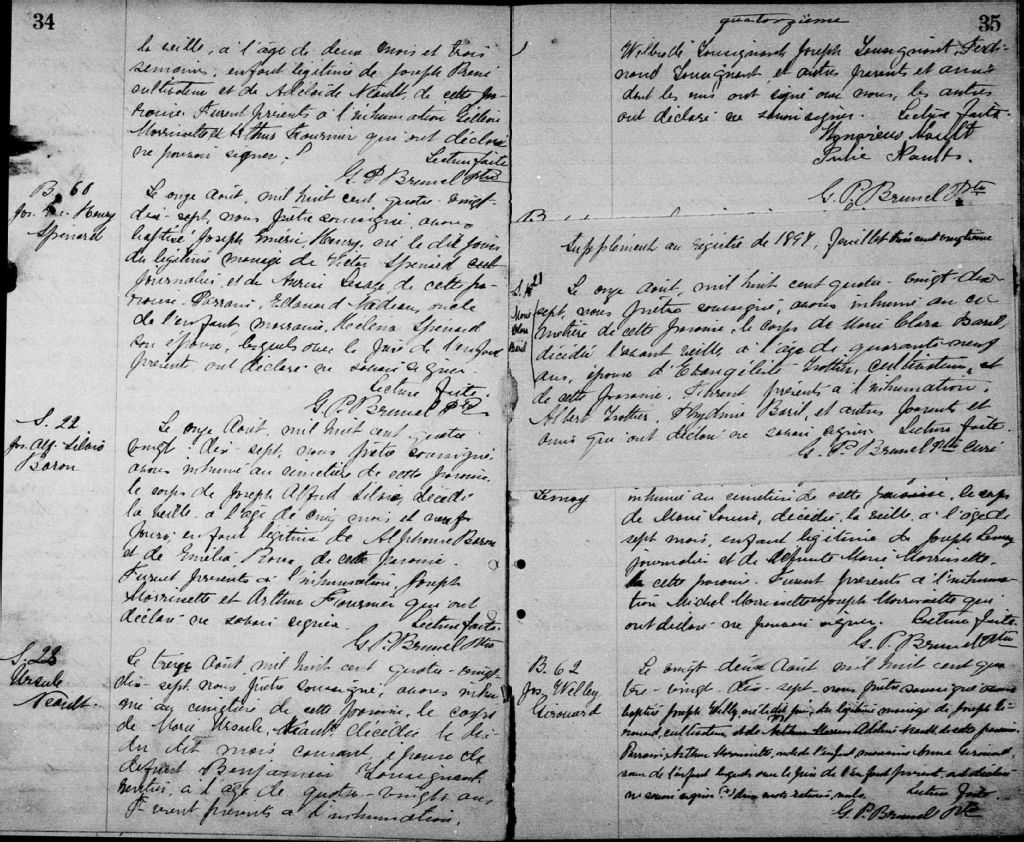 34
la veille, à l'âge de deux mois et trois
semaines, enfant légitime de Joseph René
cultivateur et de Adélaïde Néault, de cette pa-
roisse. Furent présents à l'inhumation
Morrissette et Arthur Fournier qui ont déclaré
ne pouvoir signer. Lecture faite
G. P. Brunel Ptre
B. 60
Jos. Henry
Spénard
Le onze Août, mil huit cent, quatre-vingt-
dix-sept, nous prêtre soussigné, avons
baptisé Joseph Éméri, Henry, né le dit jour
du légitime mariage de Victor Spénard
journalier, et de Lesage, de cette pa-
roisse. Parrain, Edouard Nadeau, oncle
de l'enfant, marraine, Héléna Spénard
son épouse, lesquels avec le père de l'enfant
présent ont déclaré ne savoir signer.
Lecture faite
G. P. Brunel Ptre
S. 22
Jos. Alf. Silvio
Baron
Le onze Août, mil huit cent quatre
vingt-dix-sept, nous prêtre soussigné,
avons inhumé au cimetière de cette paroisse,
le corps de Joseph Alfred Silvio, décédé
la veille, à l'âge de cinq mois et neuf
jours, enfant légitime de Alphonse Baron
et de Emélia de cette paroisse.
Furent présents à l'inhumation, Joseph
Morrissette et Arthur Fournier qui ont
déclaré ne savoir signer. Lecture faite.
G. P. Brunel Ptre
S. 23
Ursule
Néault.
Le treize Août, mil huit cent quatre-vingt-
dix-sept, nous prêtre soussigné, avons inhu-
mé au cimetière de cette paroisse, le corps
de Marie Ursule, Néault décédée le dix
du dit mois courant, épouse de
défunt Benjamin Lousignant,
rentier, à l'âge de quatre-vingts ans
Furent présents à l'inhumation,
quatorzième
35
Wilbrod Lousignant, Joseph Lousignant, Ferdi-
nand Lousignant et autres parents et amis
dont les uns ont signé avec nous, les autres
ont déclaré ne savoir signer. Lecture faite.
Néault
Julie Néault.
G. P. Brunel Ptre
Supplément au régistre de 1897, feuillet vingtième
S. 21
Marie
Clara
Baril
Le onze Août, mil huit cent quatre-vingt-dix
sept, nous prêtre soussigné, avons inhumé au ci-
metière de cette paroisse, le corps de Marie Clara Baril,
décédée l'avant veille, à l'âge de quarante-neuf
ans, épouse d'Evangéliste Trottier, cultivateur, et
de cette paroisse. Furent présents à l'inhumation.
Albert Trottier, Baril, et autres parents et
amis qui ont déclaré ne savoir signer. Lecture faite.
G. P. Brunel Ptre Curé
Lemay
inhumé au cimetière de cette paroisse, le corps
de Marie Louise, décédée, la veille, à l'âge de
sept mois, enfant légitime de Joseph Lemay
journalier et de défunte Marie Morrissette.
de cette paroisse. Furent présents à l'inhuma-
tion Michel Morrissette et Joseph Morrissette qui
ont déclaré ne pouvoir signer. Lecture faite.
G. P. Brunel Ptre
B. 62
Jos. Willey
Girouard
Le vingt deux Août mil huit cent qua-
tre-vingt-dix-sept, nous prêtre soussigné avons
baptisé Joseph Willy, né le dit jour, du légitime mariage de Joseph Gi-
rouard, cultivateur, et de Néault de cette paroisse.
Parrain, Arthur Morrissette, oncle de l'enfant, marraine Anna Girouard,
sœur de l'enfant lesquels avec le père de l'enfant présent ont déclaré
ne savoir signer. mots raturés, nuls. Lecture faite.
G. P. Brunel Ptre